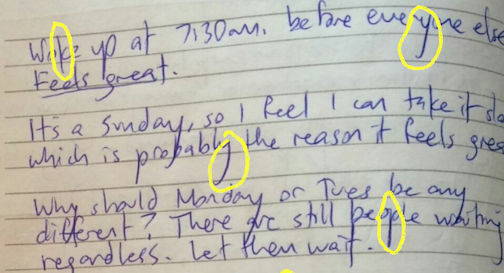 Woke up at 7:30am. before everyone else
Feels great.
It's a Sunday, so I feel I can take it slo
which is probably the reason it feels grea
Why should Monday or Tues be any
different? There are still people waiting
regardless. Let them wait.